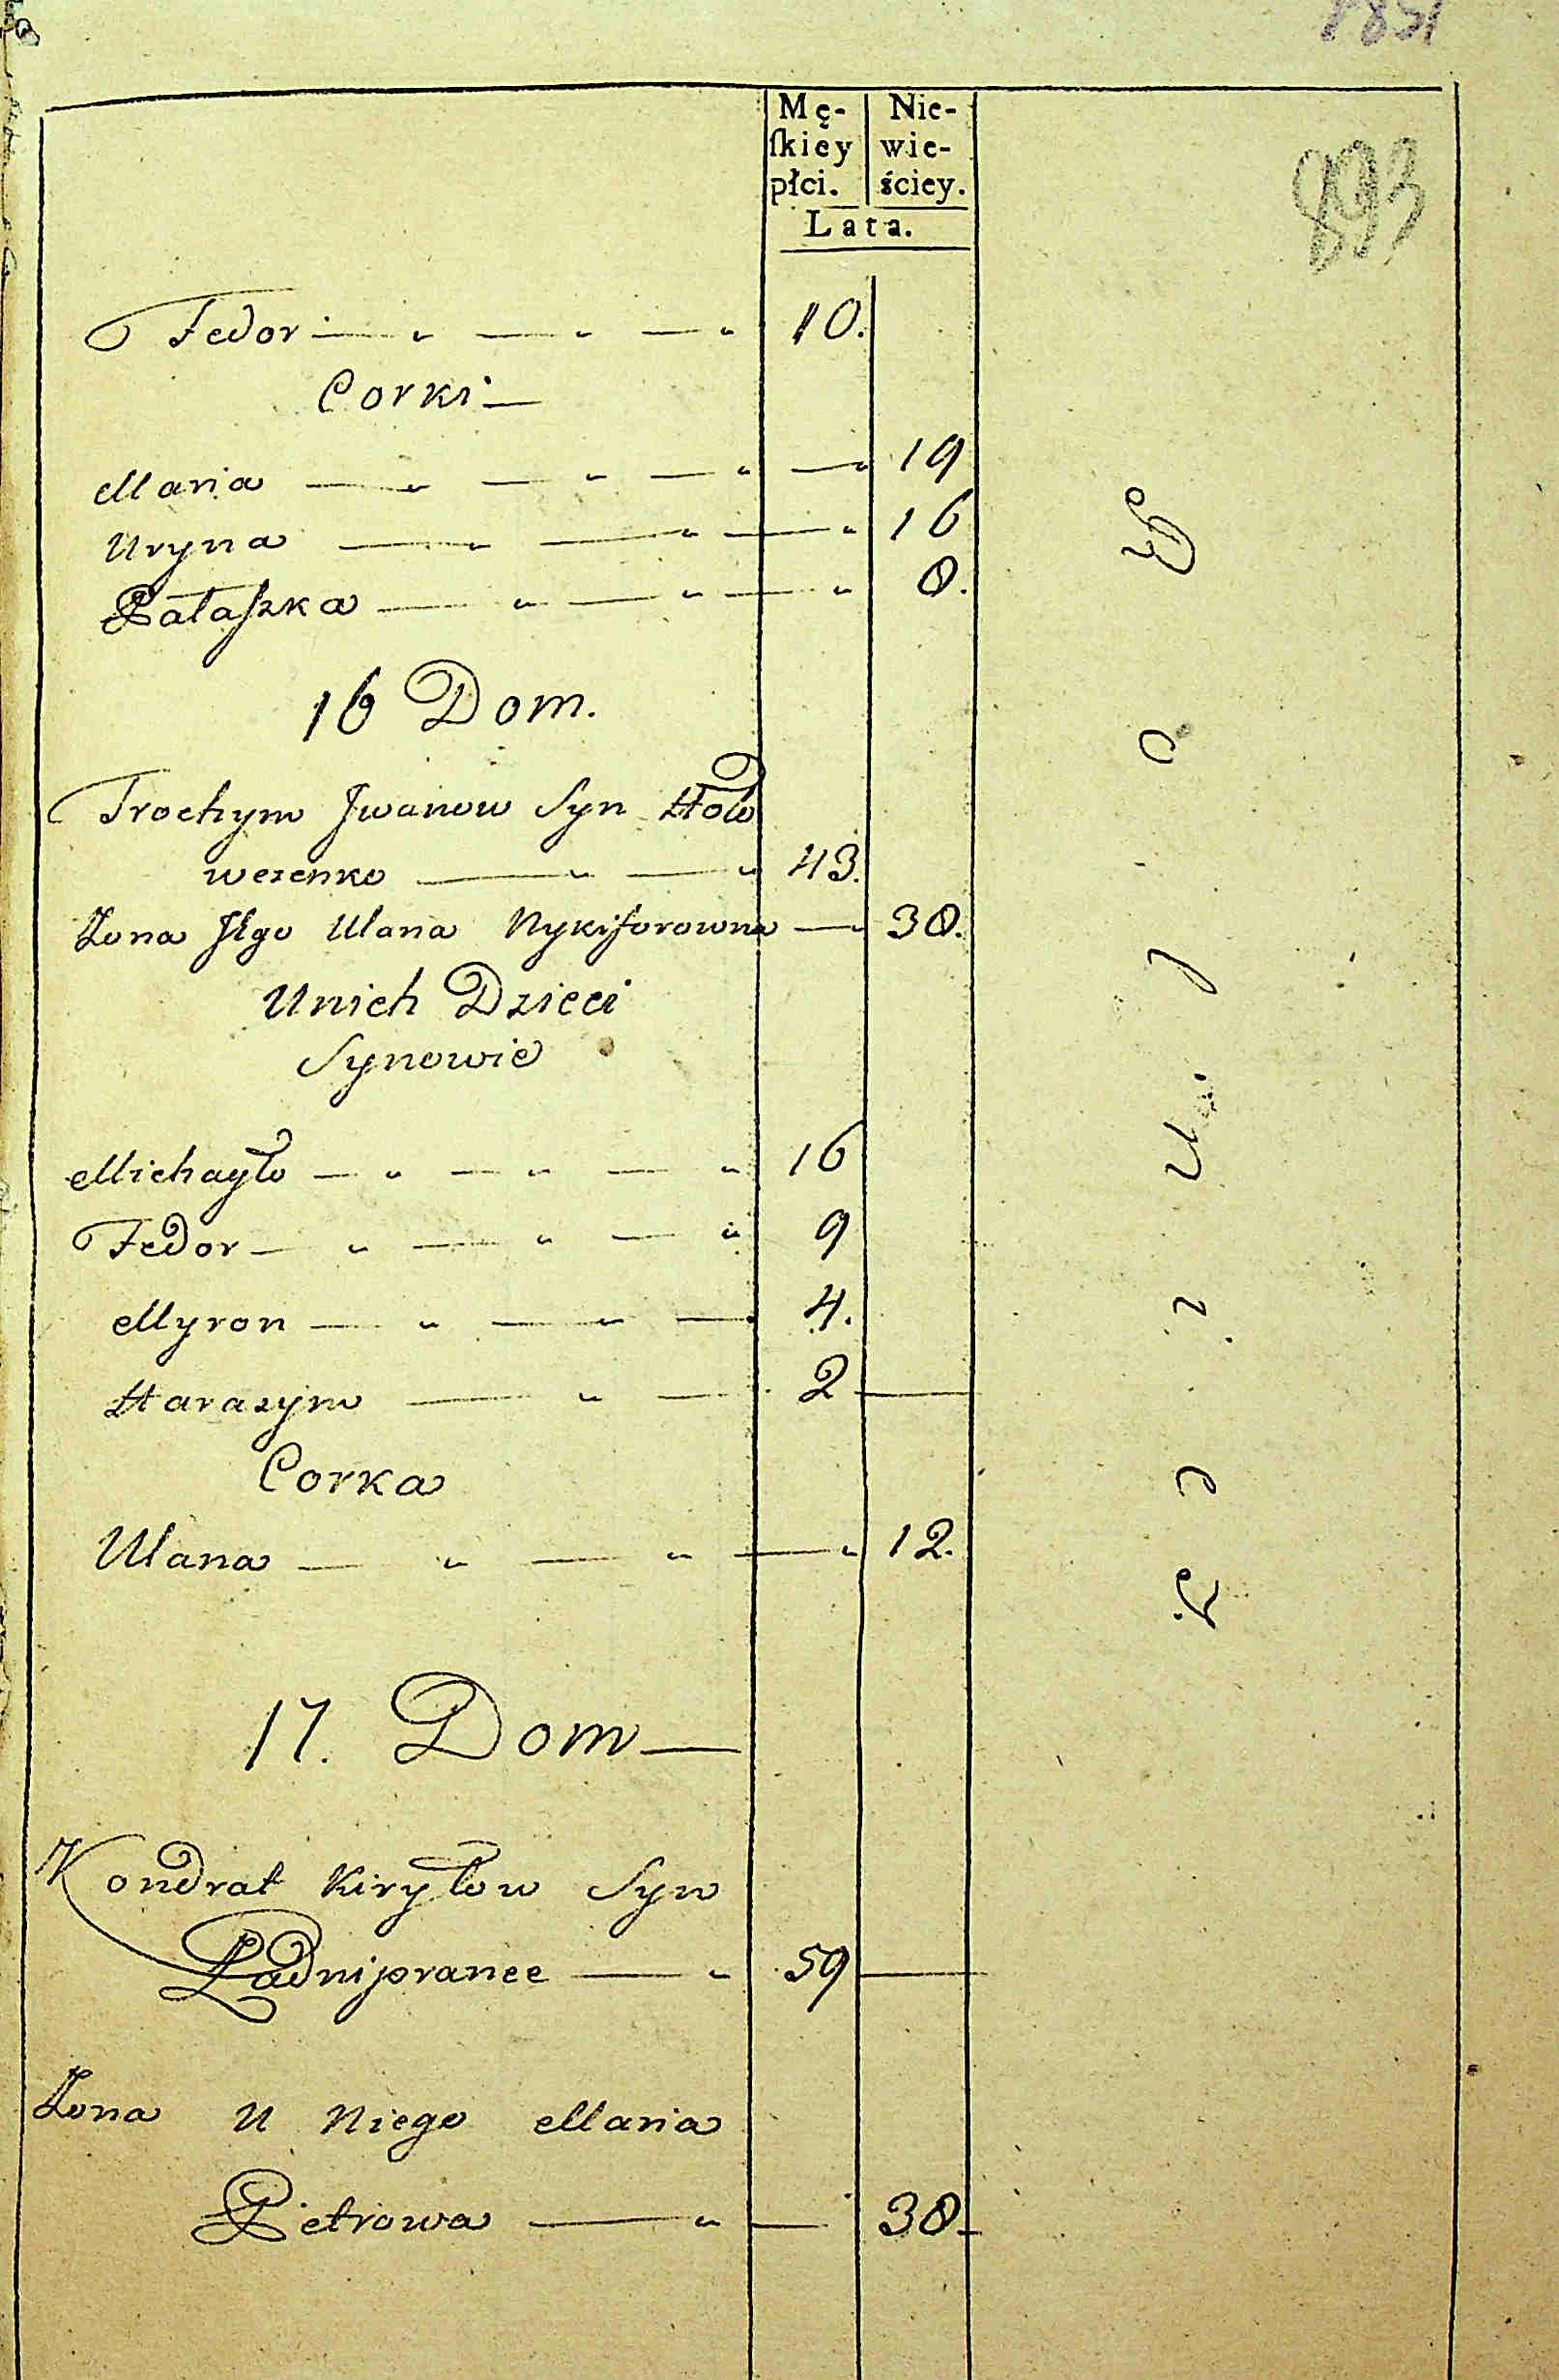 893
Mę-
ſkiey
płci.
Nie-
wie-
ściey.
Lata.
Fedor — " — " — " 10.
Corki —
Maria — " — " — " — " 19
Uryna — " — " — " 16
Pałaszka — " — " — " 8.
16 Dom.
Trochym Jwanow Syn Hoło
wezenko — " — " 43.
Zona Jego Ulana Nykiforowna — 38.
Unich Dzieci
Synowie
Michayło — " — " — " 16
Fedor — " — " — " 9
Myron — " — " — 4.
Harazym — " — 2 —
Corka
Ulana — " — " — " 12.
17. Dom —
Kondrat Kiryłow Syn
Zadnipranee — " 59 —
Zona u Niego Maria
Pietrowa — " — 38.